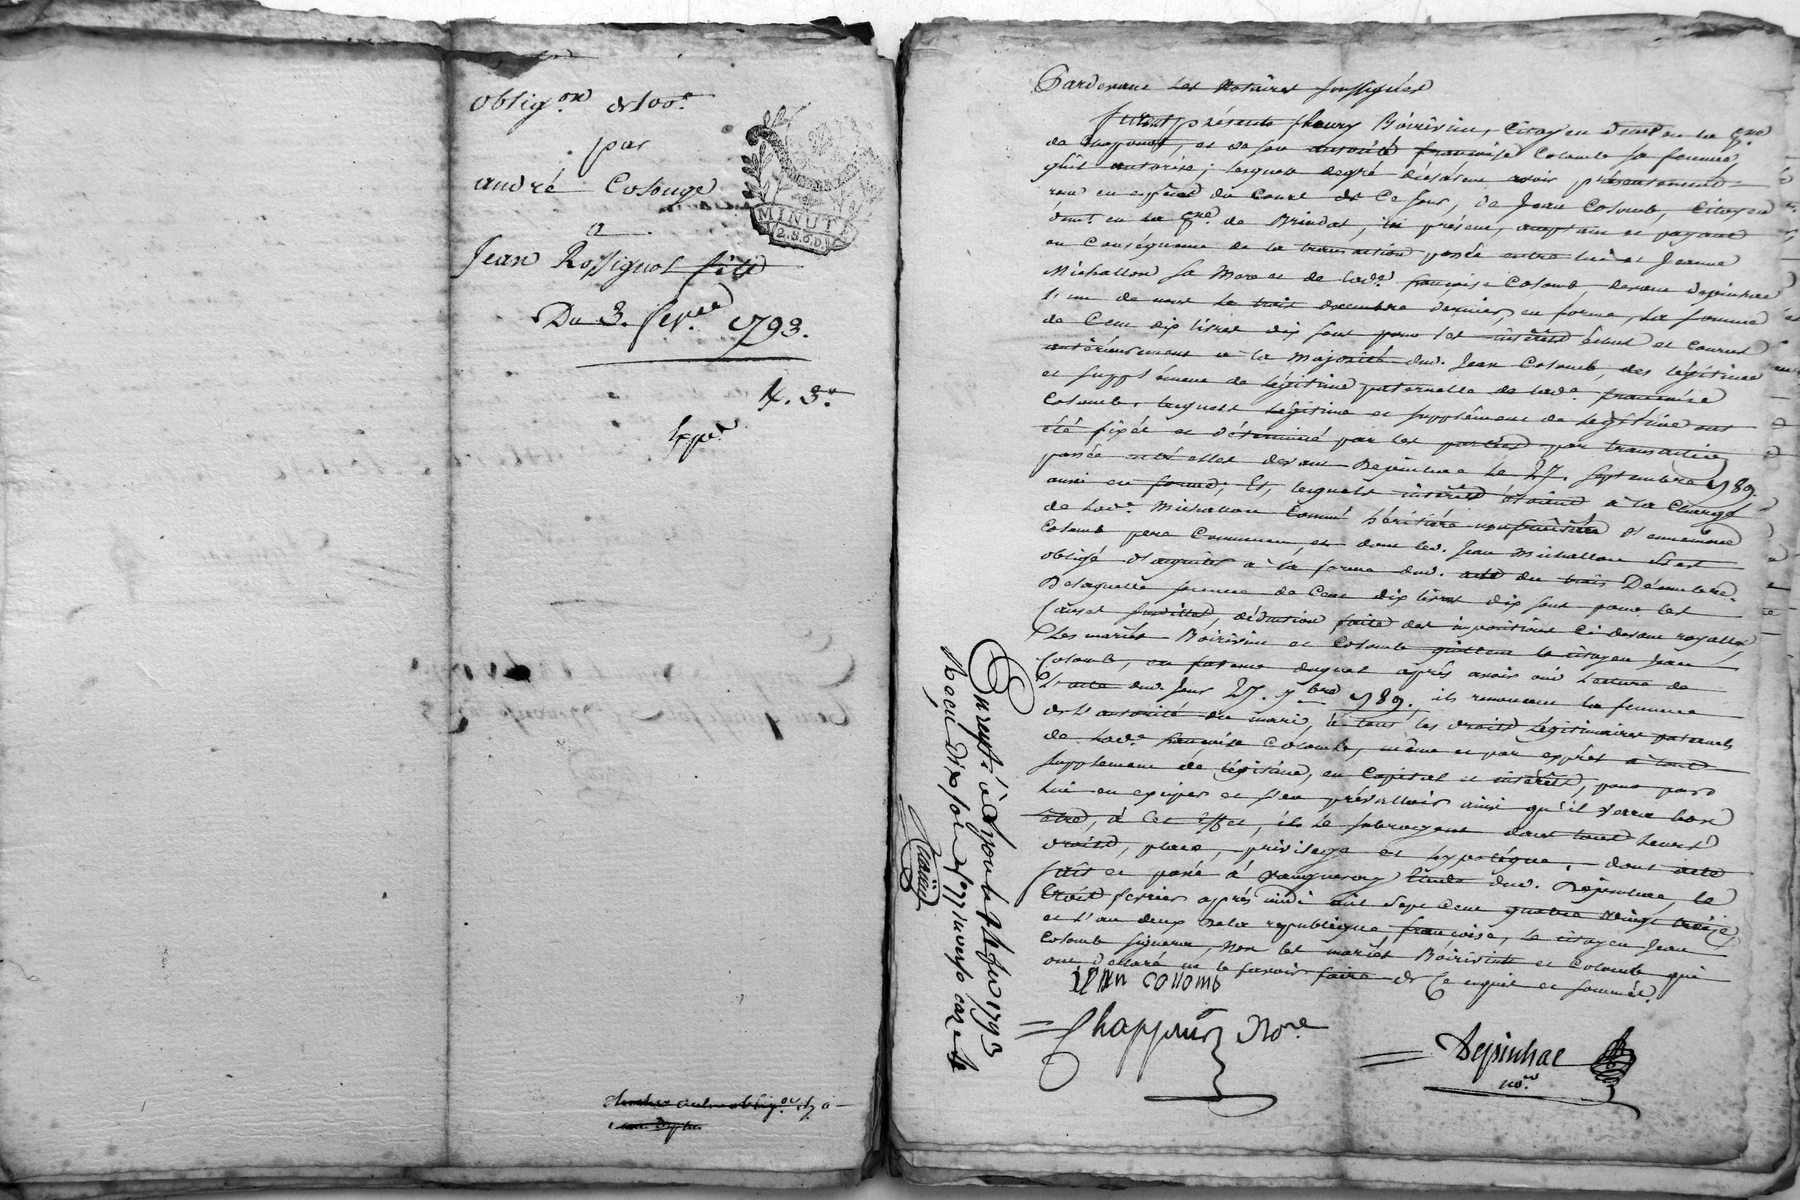 obligon
par
andré Colonge
a
Jean Rossignol fils
Du 3. fevrer 1793.
4. 3.
Expé
MINUT
2. S. 6. D.
Pardevant Les Notaires soussignés
furent présents fleury Boirivin, Citoyen demt en la
et de son autorité françoise Colomb sa femme
qu'il autorise; lesquels de gré declarent avoir présentement
reçu en espèces du cours de ce jour, de Jean Colomb, Citoyen
demt en la de Brindas, ici présent, acceptant et payant
en Conséquence de la transaction passée entre lui et Jeanne
Michallon sa Mere et de lade françoise Colomb, devant Dejoinhac
l'un de nous le trois decembre dernier, en forme, La somme
de Cent dix livres dix sous pour les intérêts échus et courus
antérieurement à la Majorité dud. Jean Colomb, des légitimes
et supplément de légitime paternelle de lade françoise
Colomb, lesquels légitime et supplément de légitime ont
été fixés et déterminés par les parties par transaction
passée entre elles devant le 27. septembre 1789.
aussi en forme; Et, lesquels intérêts étoient à la Charge
de lade Michallon comme héritière d'ennemond
Colomb pere Commun, et dont led. Jean s'est
obligé d'acquitter à la forme dud. acte du trois Décembre.
De laquelle somme de Cent dix livres dix sous pour les
Causes susdites, déduction faite des impositions ci devant royalles
Les mariés Boirivin et Colomb quittent le citoyen Jean
Colomb, en faveur duquel après avoir oui Lecture de
L'acte dud. jour 27. 7bre 1789., ils renoncent la femme
de l'autorité du mari, à tous les droits légitimaires paternels
de lade françoise Colomb, même et par exprès à tout
supplement de légitime, en Capital et intérêts, pour par
lui en exiger et s'en prévalloir ainsi qu'il verra bon
être, à Cet Effet, ils le subrogent dans tous leurs
droits, place, privilege et hypotéque. dont acte
fait et passé à Vaugneray Etude dud. le
trois fevrier après midi mil sept Cent quatre vingt treize,
et l'an deux de la republique françoise, Le citoyen Jean
Colomb signera, non les mariés Boirivin et Colomb qui
ont déclaré ne le savoir faire de Ce enquis et sommés.
iean collomb
Nore
nore
Enregtré à le 1793
Reçu Dix sols